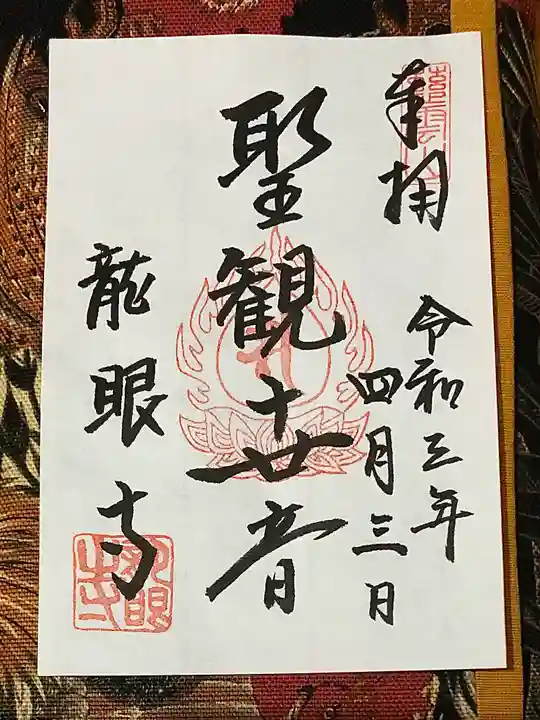 奉拝
令和三年
四月三日
聖観世音
龍眼寺